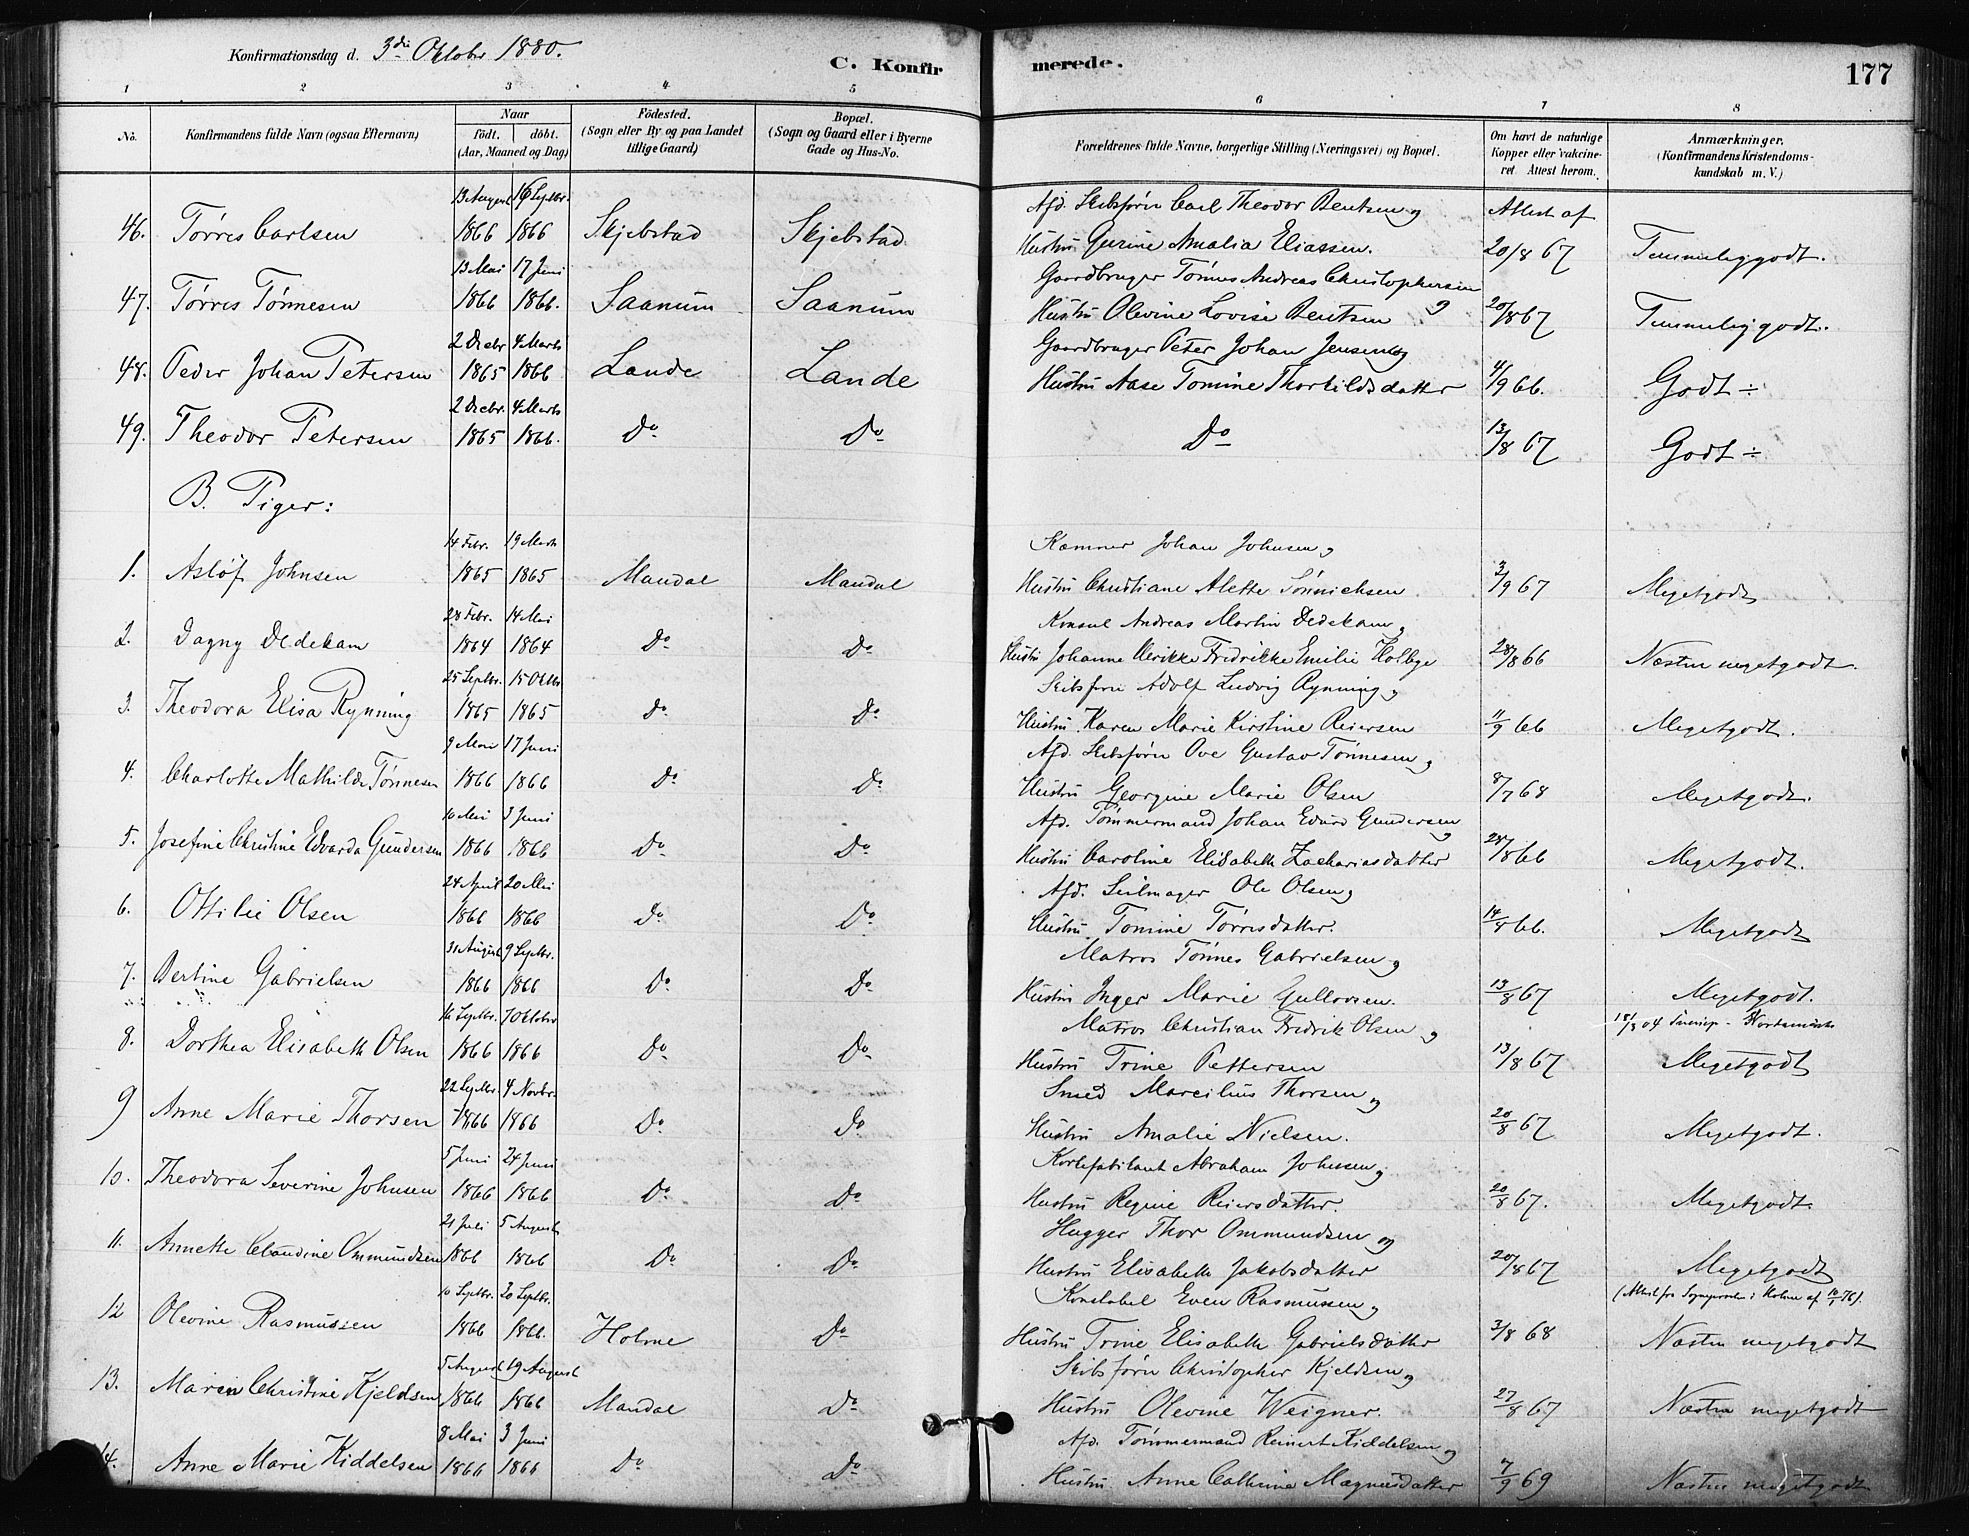 Konfirmationsdag d. 3die Oktober 1880.
C. Konfirmerede.
177
1 2 3 4 5 6 7 8
No. Konfirmandens fulde Navn (ogsaa Efternavn) Naar födt. döbt. (Aar, Maaned og Dag) Födested. (Sogn eller By og paa Landet tillige Gaard) Bopæl. (Sogn og Gaard eller i Byerne Gade og Hus-No. Forældrenes fulde Navne, borgerlige Stilling (Næringsvei) og Bopæl. Om havt de naturlige Kopper eller vakcineret Attest herom. Anmærkninger. (Konfirmandens Kristendomskundskab m. V.)
13 August 16 Septbr. Afd. Skibsfører Carl Theodor Bentsen og Attest af
46. Tørres Carlsen 1866 1866 Skjebstad Skjebstad Hustru Gurine Amalia Eliassen. 20/8 67 Temmelig godt.
13 Mai 17 Juni Gaardbruger Tønnes Andreas Christophersen
47. Tørres Tønnesen 1866 1866. Saanum Saanum og Hustru Olevine Lovise Bentsen 20/8 67 Temmelig godt.
2 Decbr 4 Marts Gaardbruger Peter Johan Jensen og
48. Peder Johan Petersen 1865 1866 Lande Lande Hustru Aase Tomine Thorkildsdatter 4/9 66. Godt ÷
2 Decbr. 4 Marts
49. Theodor Petersen 1865 1866. Do Do Do 13/8 67 Godt ÷
B. Piger:
14 Febr. 19 Marts Kæmner Johan Johnsen og
1. Asløf Johnsen 1865 1865 Mandal Mandal Hustru Christiane Alette Tønnichsen 3/9 67 Megetgodt
28 Febr. 14 Mai Konsul Andreas Martin Dedekam og
2. Dagny Dedekam 1864 1864 Do Do Hustru Johanne Ulrikke Fredrikke Emilie Holbye 28/8 66 Næsten megetgodt.
25 Septbr. 15 Oktbr Skibsfører Adolf Ludvig Rynning og
3. Theodora Elisa Rynning 1865 1865 Do Do Hustru Karen Marie Kirstine Reiersen 11/9 66 Megetgodt.
9 Mai 17 Juni Afd. Skibsfører Ove Gustav Tønnesen og
4. Charlotte Mathilde Tønnesen 1866 1866 Do Do Hustru Georgine Marie Olsen 8/7 68 Megetgodt.
10 Mai 3 Juni Afd. Tømmermand Johan Edvard Gundersen og
5. Josefine Christine Edvarda Gundersen 1866 1866 Do Do Hustru Caroline Elisabeth Zachariasdatter 28/8 66 Megetgodt.
24 April 20 Mai Afd. Seilmager Ole Olsen og
6. Ottilie Olsen 1866 1866 Do Do Hustru Tomine Tørrisdatter. 14/8 66. Megetgodt
31 August 9 Septbr. Matros Tønnes Gabrielsen og
7. Bertine Gabrielsen 1866 1866 Do Do Hustru Inger Marie Gullovsen. 13/8 67 Megetgodt.
16 Septbr. 7 Oktober Matros Christian Fredrik Olsen og 18/3 04
8. Dorthea Elisabeth Olsen 1866 1866 Do Do Hustru Trine Pettersen 13/8 67 Megetgodt
22 Septbr. 4 Novbr. Smed Marcilius Thorsen og
9 Anne Marie Thorsen 1866 1866 Do Do Hustru Amalie Nielsen. 20/8 67 Megetgodt.
5 Juni 24 Juni Korkfabrikant Abraham Johnsen og
10. Theodora Severine Johnsen 1866 1866 Do Do Hustru Regine Reiersdatter. 20/8 67. Megetgodt.
21 Juli 5 August Hugger Thor Ommundsen og
11. Annette Claudine Ommundsen 1866 1866 Do Do Hustru Elisabeth Jakobsdatter 20/8 67 Megetgodt
10 Septbr. 20 Septbr. Konstabel Even Rasmussen og (Attest fra Sognepresten i Holme af
12 Olevine Rasmussen 1866 1866. Holme Do Hustru Trine Elisabeth Gabrielsdatter 3/8 68 Næsten megetgodt
5 August 19 August Skibsfører Christopher Kjeldsen og
13. Maren Christine Kjeldsen 1866 1866 Mandal Do Hustru Olevine Weigner. 27/8 67 Næsten megetgodt
8 Mai 3 Juni Afd. Tømmermand Reinert Kiddelsen og
14. Anne Marie Kiddelsen 1866 1866 Do Do Hustru Anne Cathrine Magnusdatter 7/9 69 Næsten megetgodt